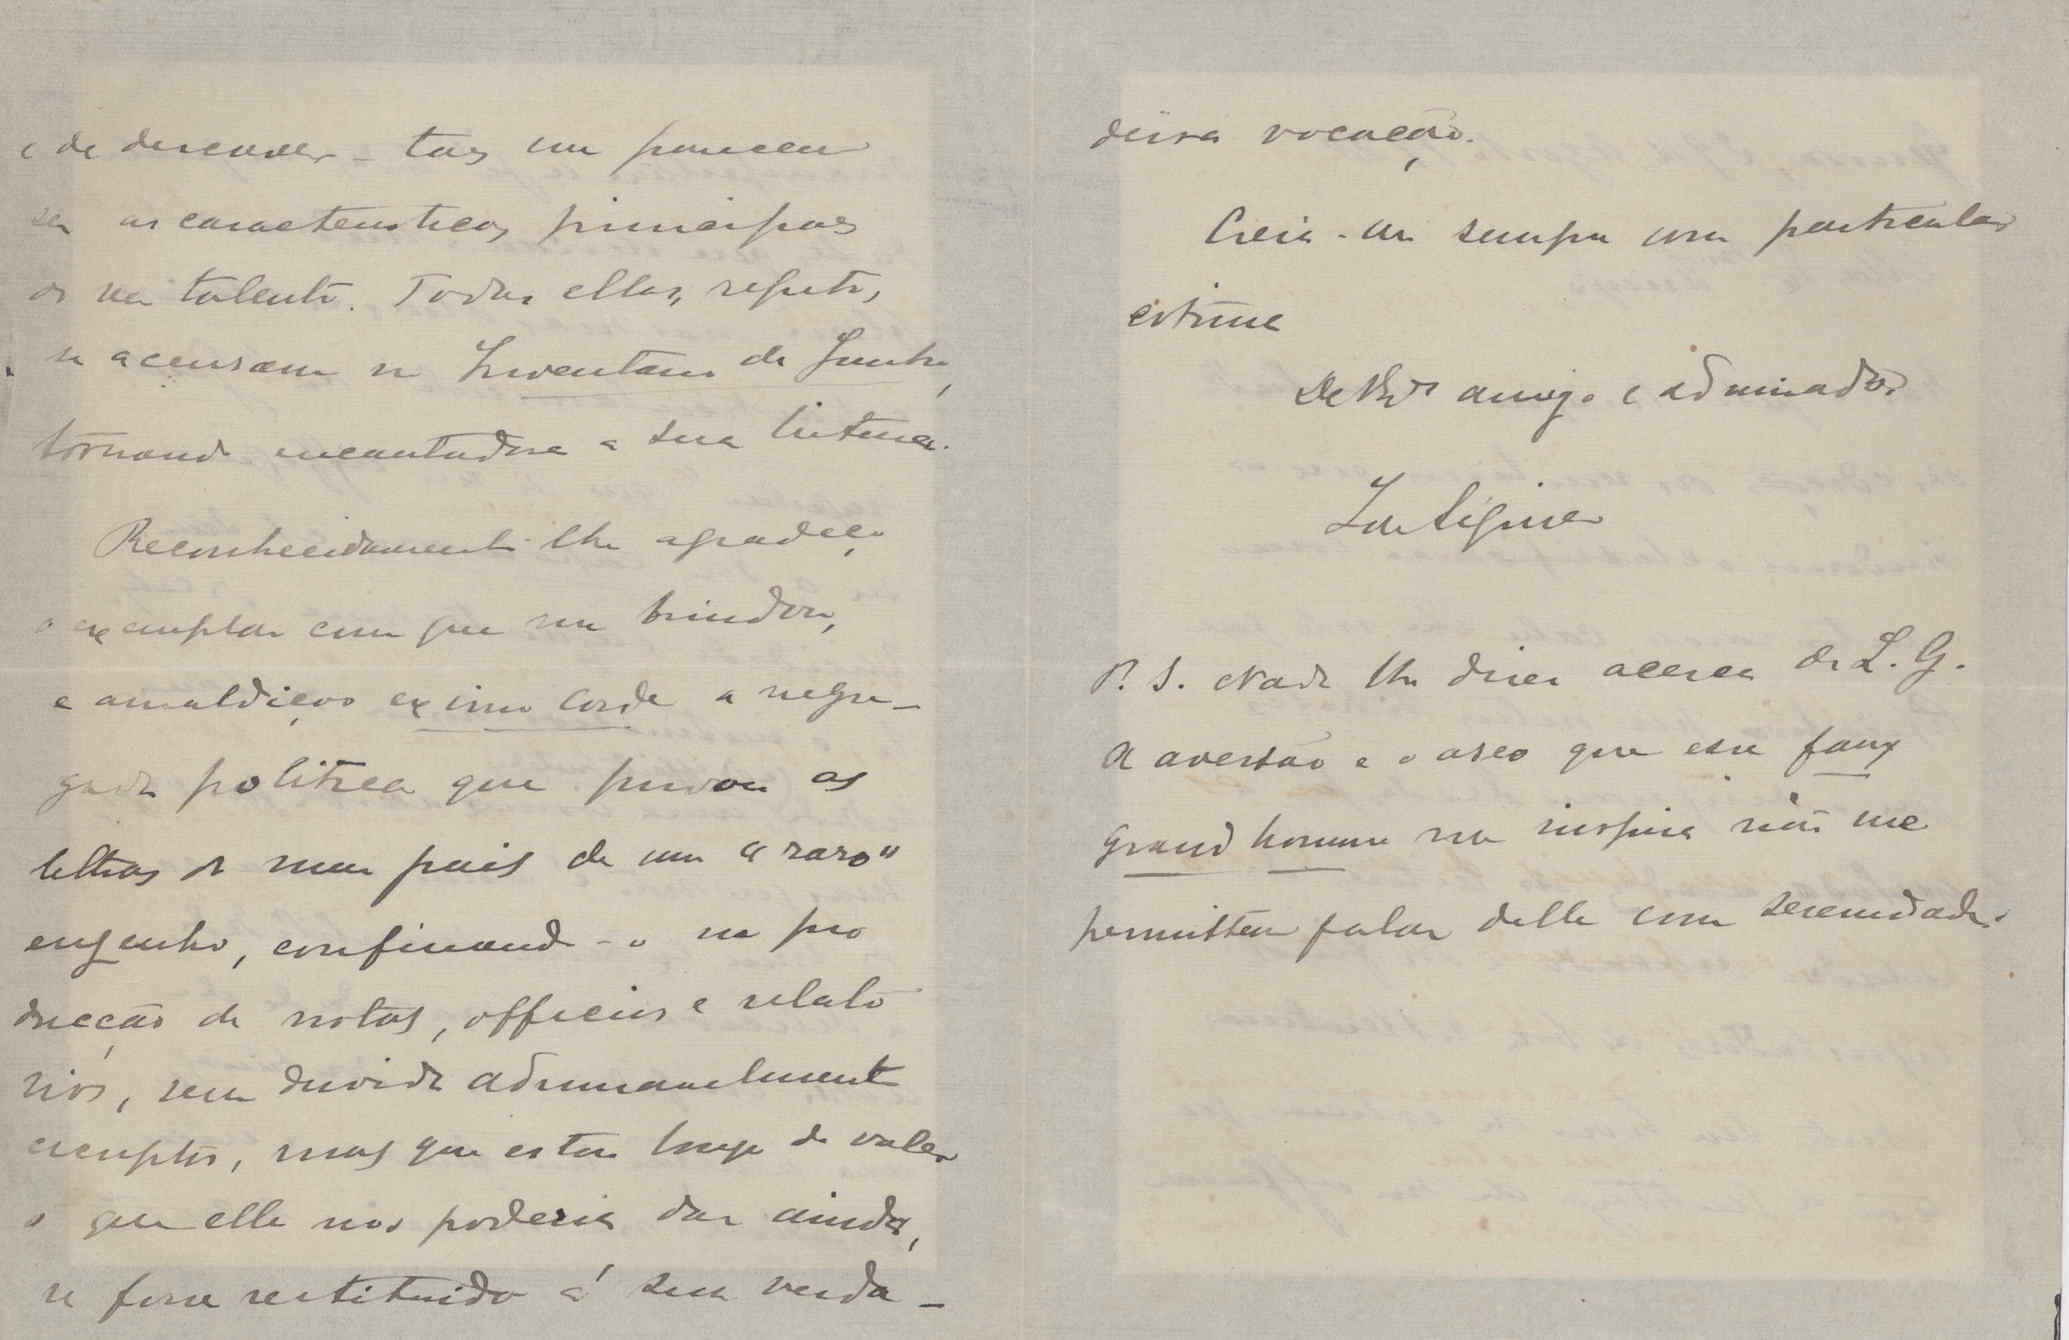 e de descrever-tas me parecem
ser as caracteristicas principaes
do seu talento. Todas ellas, repito,
se accusam no Inventario de Junho,
tornando encantadora a sua leitura.
Reconhecidamente lhe agradeço
o exemplar com que me brindou,
e amaldiçoo ex imo corde a negre-
gada politica que privou as
lettras do meu pais de um "raro"
engenho, confinando-o na pro
ducção de notas, officios e relato
rios, sem duvida admiravelmente
escriptos, mas que estão longe de valer
o que elle nos poderia dar ainda,
se fosse restituido á sua verda-
deira vocação.
Creia-me sempre com particular
estima
De amigo e admirador
P. S. Nada lhe direi acerca de L. G.
A aversão e o asco que esse faux
grand homme me inspira não me
permittem falar delle com serenidade.